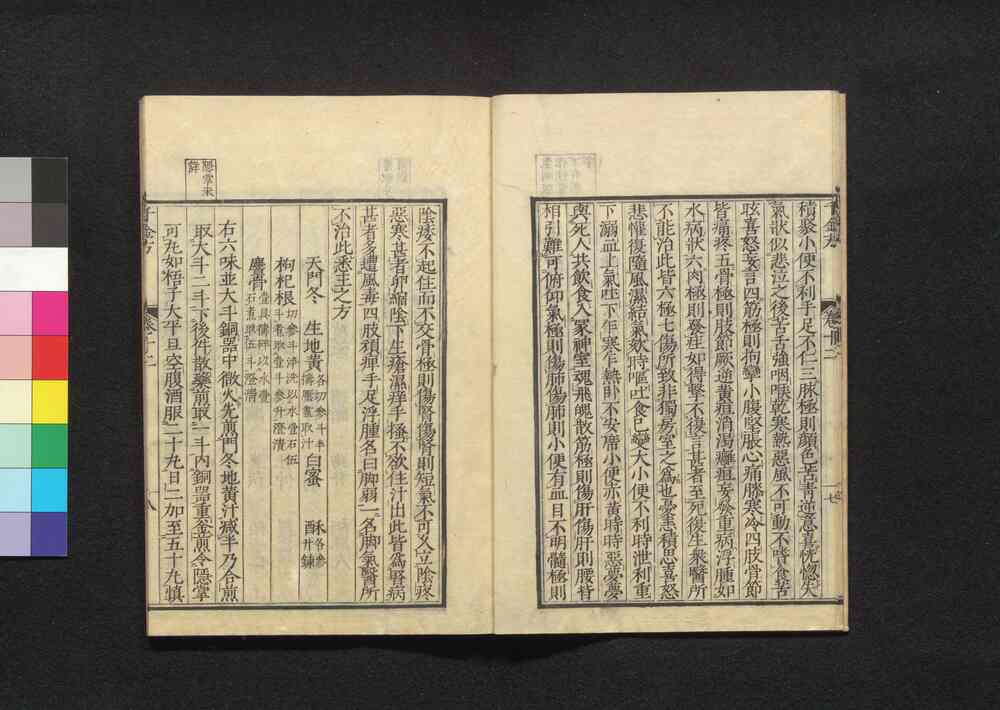 積聚小便不利手足不仁三脉極則顔色苦青逆意喜恍惚失
氣狀似悲泣之後苦舌強咽喉乾寒熱惡風不可動不嗜食苦
眩喜怒妄言四筋極則拘攣小腹堅脹心痛膝寒冷四肢骨節
皆痛疼五骨極則肢節厥逆黄疸消渴癰疽妄發重病浮腫如
水病狀六肉極則發疰如得擊不復言甚者至死復生衆醫所
不能治此皆六極七傷所致非獨房室之爲也憂恚積思喜怒
悲懽復隨風濕結氣欬時嘔吐食已變大小便不利時泄利重
下溺血上氣吐下乍寒乍熱卧不安席小便赤黄時時惡夢夢
與死人共飲食入冢神室魂飛魄散筋極則傷肝傷肝則腰背
相引難可俯仰氣極則傷肺傷肺則小便有血目不明髓極則
千金方 卷十二 十七
陰痿不起住而不交骨極則傷腎傷腎則短氣不可久立陰疼
惡寒甚者卵縮陰下生瘡濕痒手極不欲住汁出此皆爲腎病
甚者多遭風毒四肢頑痺手足浮腫名曰脚弱一名脚氣醫所
不治此悉主之方
天門冬 生地黄 各切參斗半擣壓盡取汁 白蜜 酥各參升鍊
枸杞根 切參斗淨洗以水壹石伍斗煮取壹斗參升澄清
麞骨 壹具擣碎以水壹石煮取五斗澄清
右六味並大斗銅器中微火先煎門冬地黄汁減半乃合煎
取大斗二斗下後件散藥煎取一斗内銅器重釜煎令隱掌
可丸如梧子大平旦空腹酒服二十九日二加至五十九慎
隱掌未詳
千金方 卷十二 十八